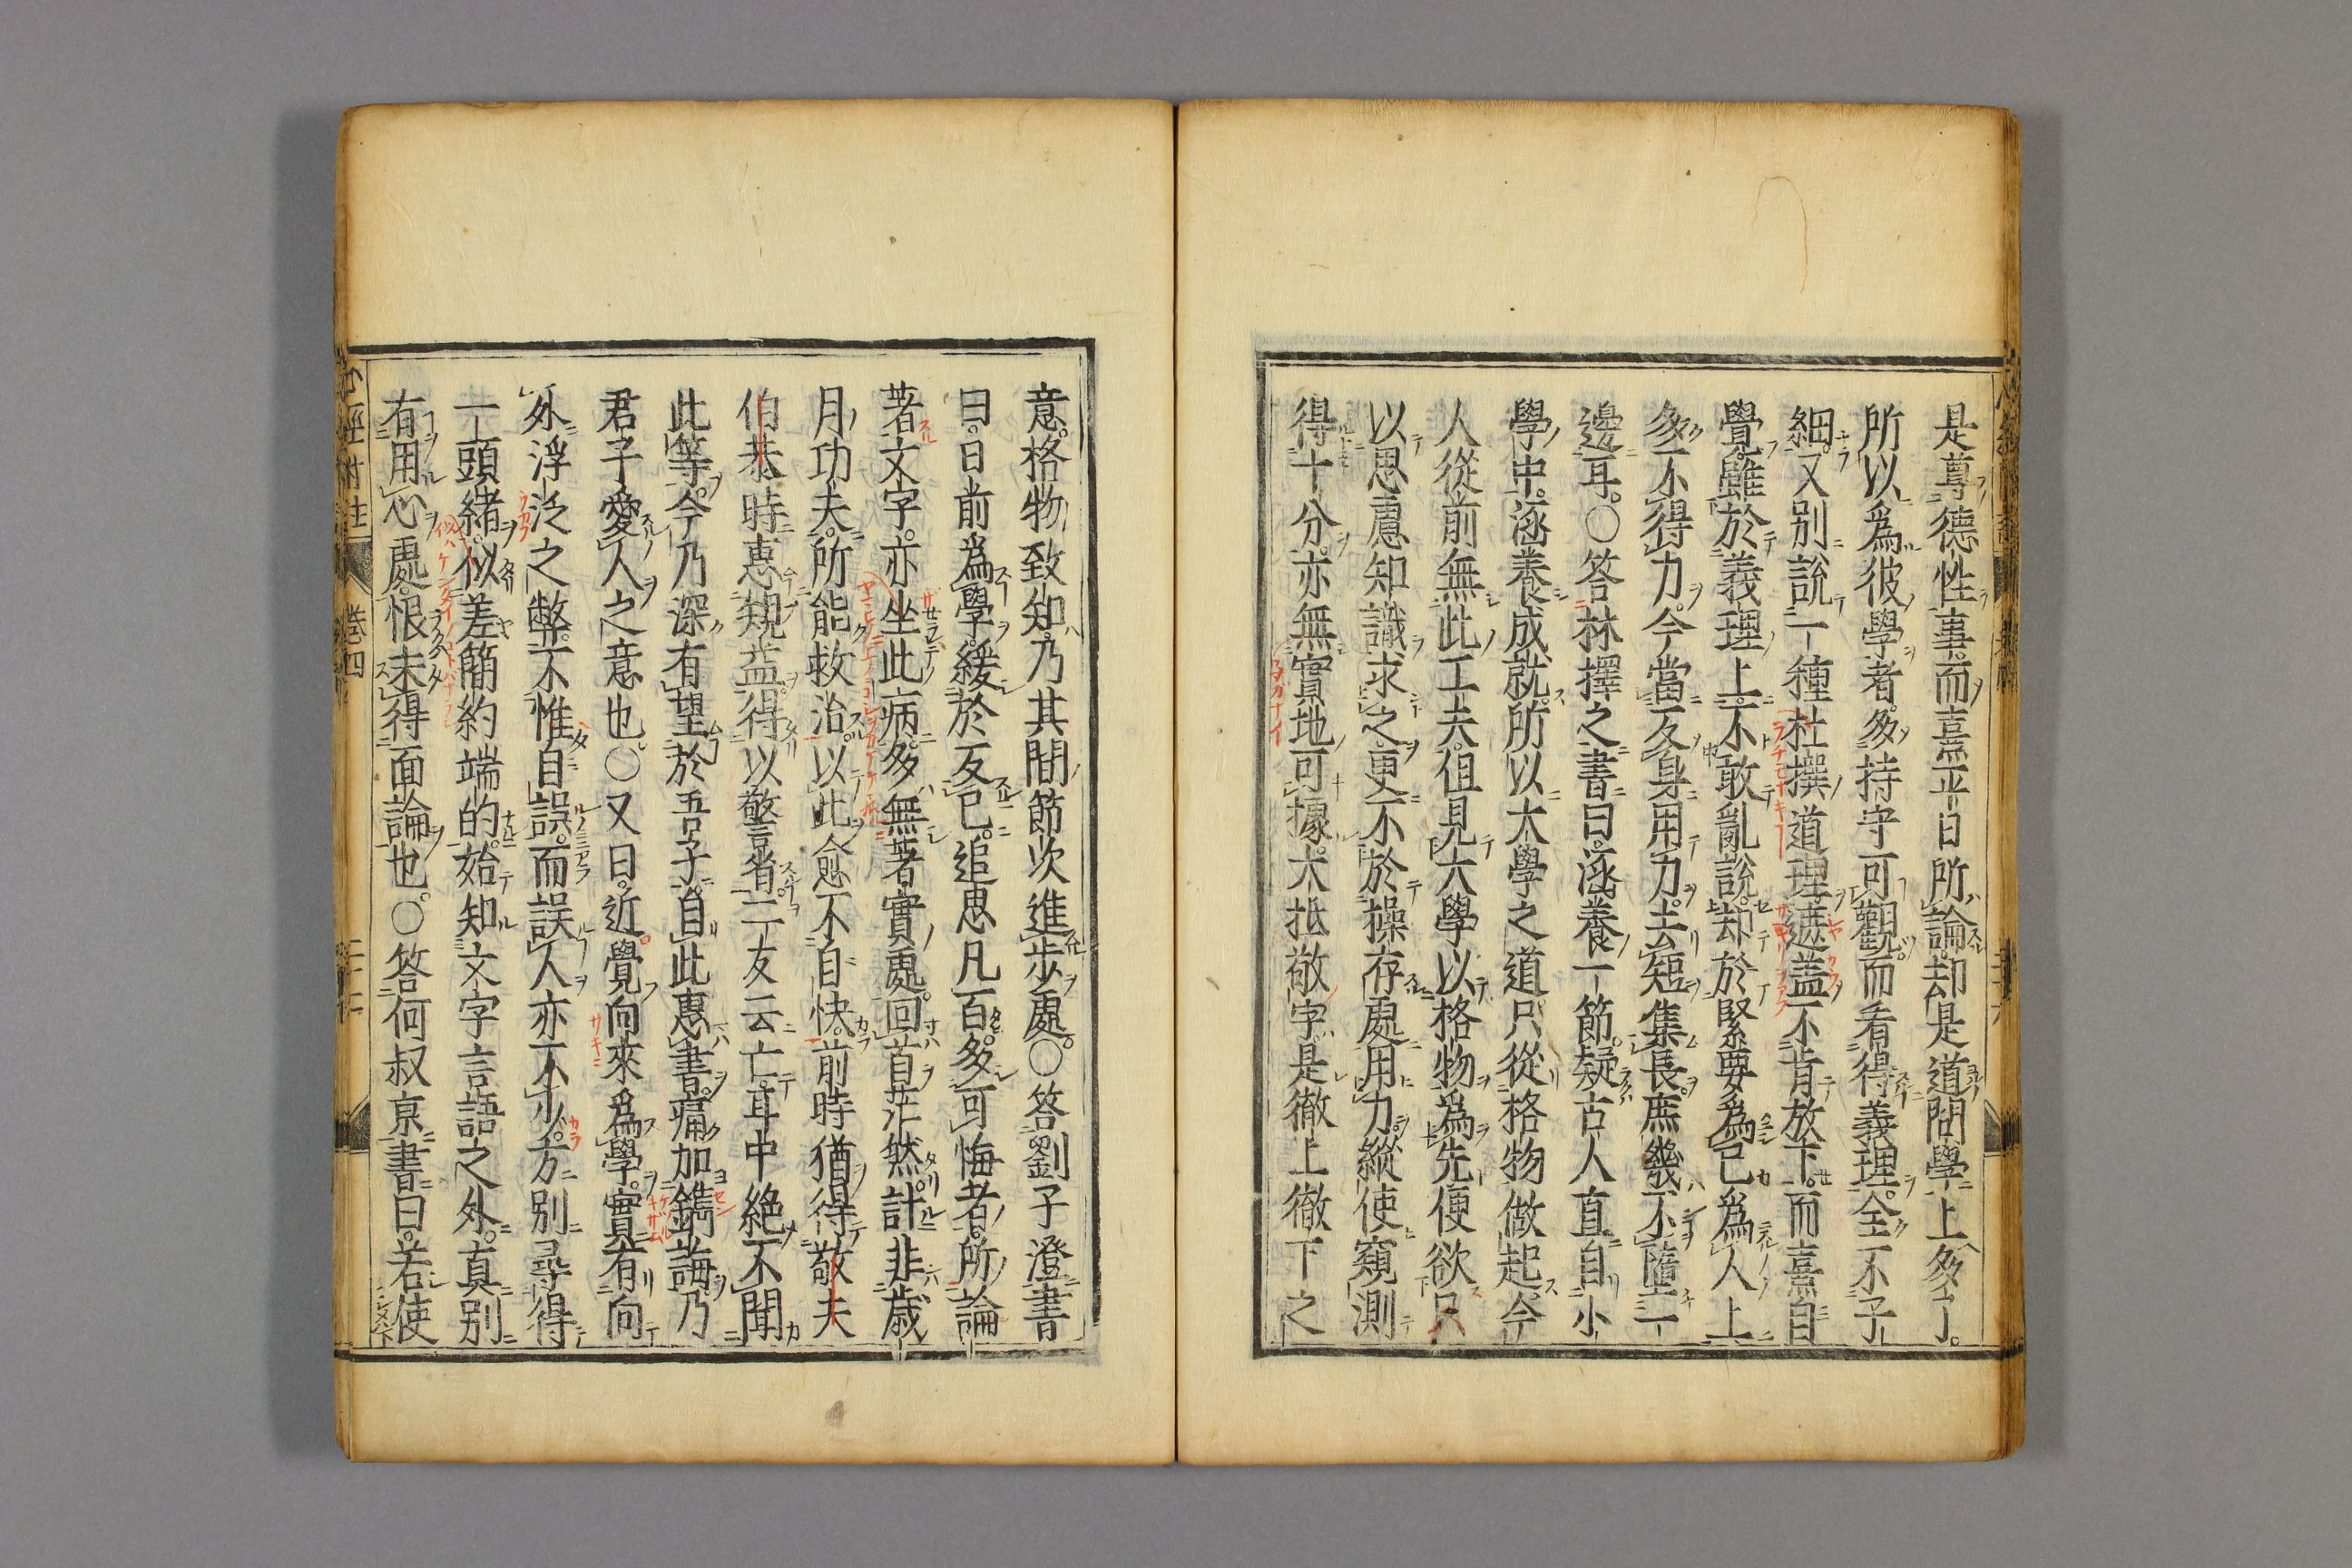 是尊德性事而熹平日所論却是道問學上多了
所以爲彼學者多持守可觀而看得義理全不子
細又别說一種杜撰道理遮盖不肯放下而熹自
覺雖於義理上不敢亂說却於緊要爲己爲人上
多不得力今當反身用力去短集長庶幾不墮一
邊耳○答林擇之書曰涵養一節疑古人直自小
學中涵養成就所以大學之道只從格物做起今
人從前無此工夫但見大學以格物爲先便欲只
以思慮知識求之更不於操存處用力縱使窺測
得十分亦無實地可據大抵敬字是徹上徹下之
意格物致知乃其間節次進步處○答劉子澄書
曰日前爲學緩於反己追思凡百多可悔者所論
著文字亦坐此病多無著實處回首茫然計非歳
月功夫所能救治以此愈不自快前時猶得敬夫
伯恭時惠規益得以警省二友云亡耳中絶不聞
此等今乃深有望於吾子自此惠書痛加鐫誨乃
君子愛人之意也○又曰近覺向來爲學實有向
外浮泛之弊不惟自誤而誤人亦不少方别尋得
一頭緒似差簡約端的始知文字言語之外真别
有用心處恨未得面論也○答何叔京書曰若使
心經附註 卷四